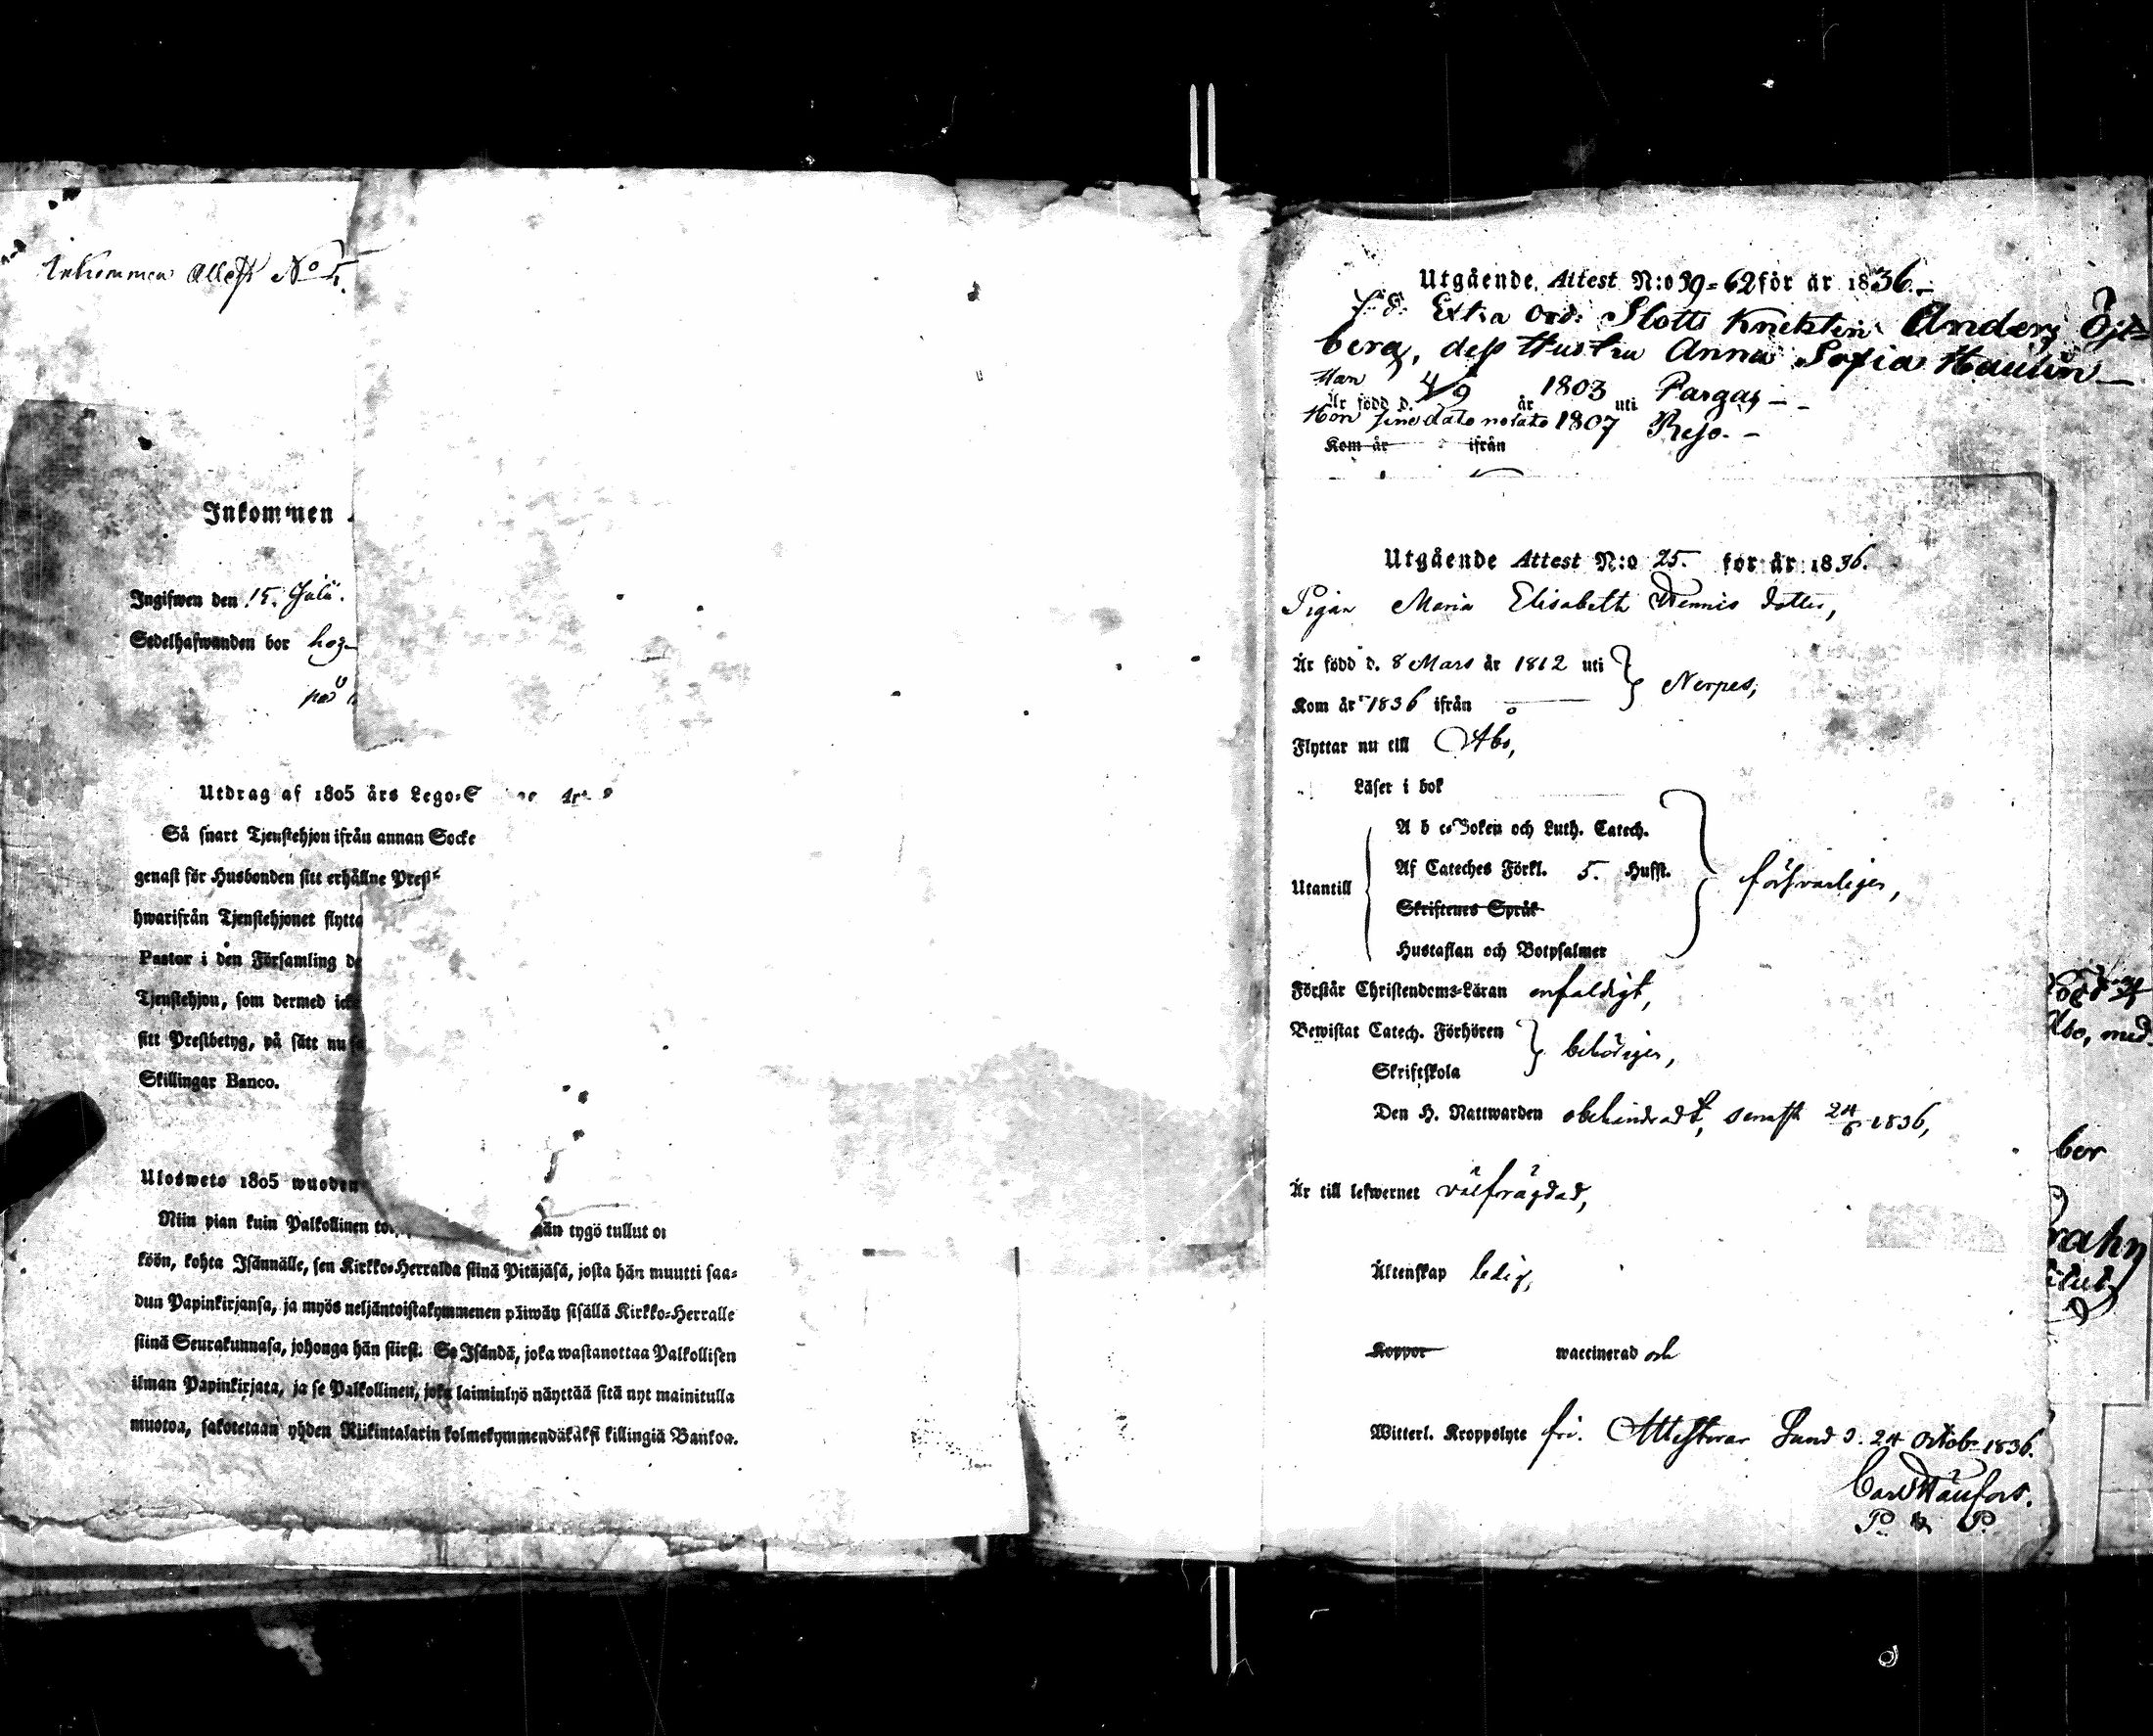 Inkommen Attest No
Inkommen
Ingifwen den 15. Julii.
Sedelhafwanden bor
på
Utdrag af 1805 års Lego-S
Så snart Tjenstehjon ifrån annan Socke
genast för Husbonden sitt erhållne Prest
hwarifrån Tjenstehjonet flytta
Pastor i den Församling de
Tjenstehjon, som dermed ick
sitt Prestbetyg, på sätt nu sa
Skillingar Banco.
Ulosweto 1805 wuoden
Niin pian kuin Palkollinen to hän tygö tullut on
köön, kohta Isännälle, sen Kirkko-Herralda siinä Pitäjäsä, josta hän muutti saa-
dun Papinkirjansa, ja myös neljäntoistakymmenen päiwän sisällä Kirkko-Herralle
siinä Seurakunnasa, johonga hän siirsi. Se Isändä, joka wastanottaa Palkollisen
ilman Papinkirjata, ja se Palkollinen, joka laiminlyö näyttää sitä nyt mainitulla
muotoa, sakotetaan yhden Riikintalarin kolmekymmendäkaksi killingiä Bankoa.
Utgående Attest N:o 39=62 för år 1836.
f.d. Extra Ord: Slotts Knekten Anders Öje-
berg, dess Hustru Anna Sofia
Han
Är född d. 4/9 år 1803 uti Pargas
Hon sine dato notato 1807 Reso.
Kom år ifrån
Utgående Attest N:o 25. för år 1836.
Pigan Maria Elisabeth dotter,
Är född d. 8 Mars år 1812 uti
Nerpes,
Kom år 1836 ifrån
Flyttar nu till Åbo,
Läser i bok
A b c-Boken och Luth. Catech.
Af Cateches Förkl. 5. Hufst.
Utantill försvarligen,
Skriftenes Språk
Hustaflan och Botpsalmer
Förstår Christendoms-Läran enfaldigt,
Bewistat Catech. Förhören
behörigen,
Skriftskola
Den H. Nattwarden obehindradt, senast 24/6 1836,
Är till lefwernet välfrägdad,
Äktenskap ledig,
Koppor waccinerad och
Witterl. Kroppslyte fri. Attesterar Sund d. 24 Octob. 1836.
Carl
P. P.
Åbo, med
ber